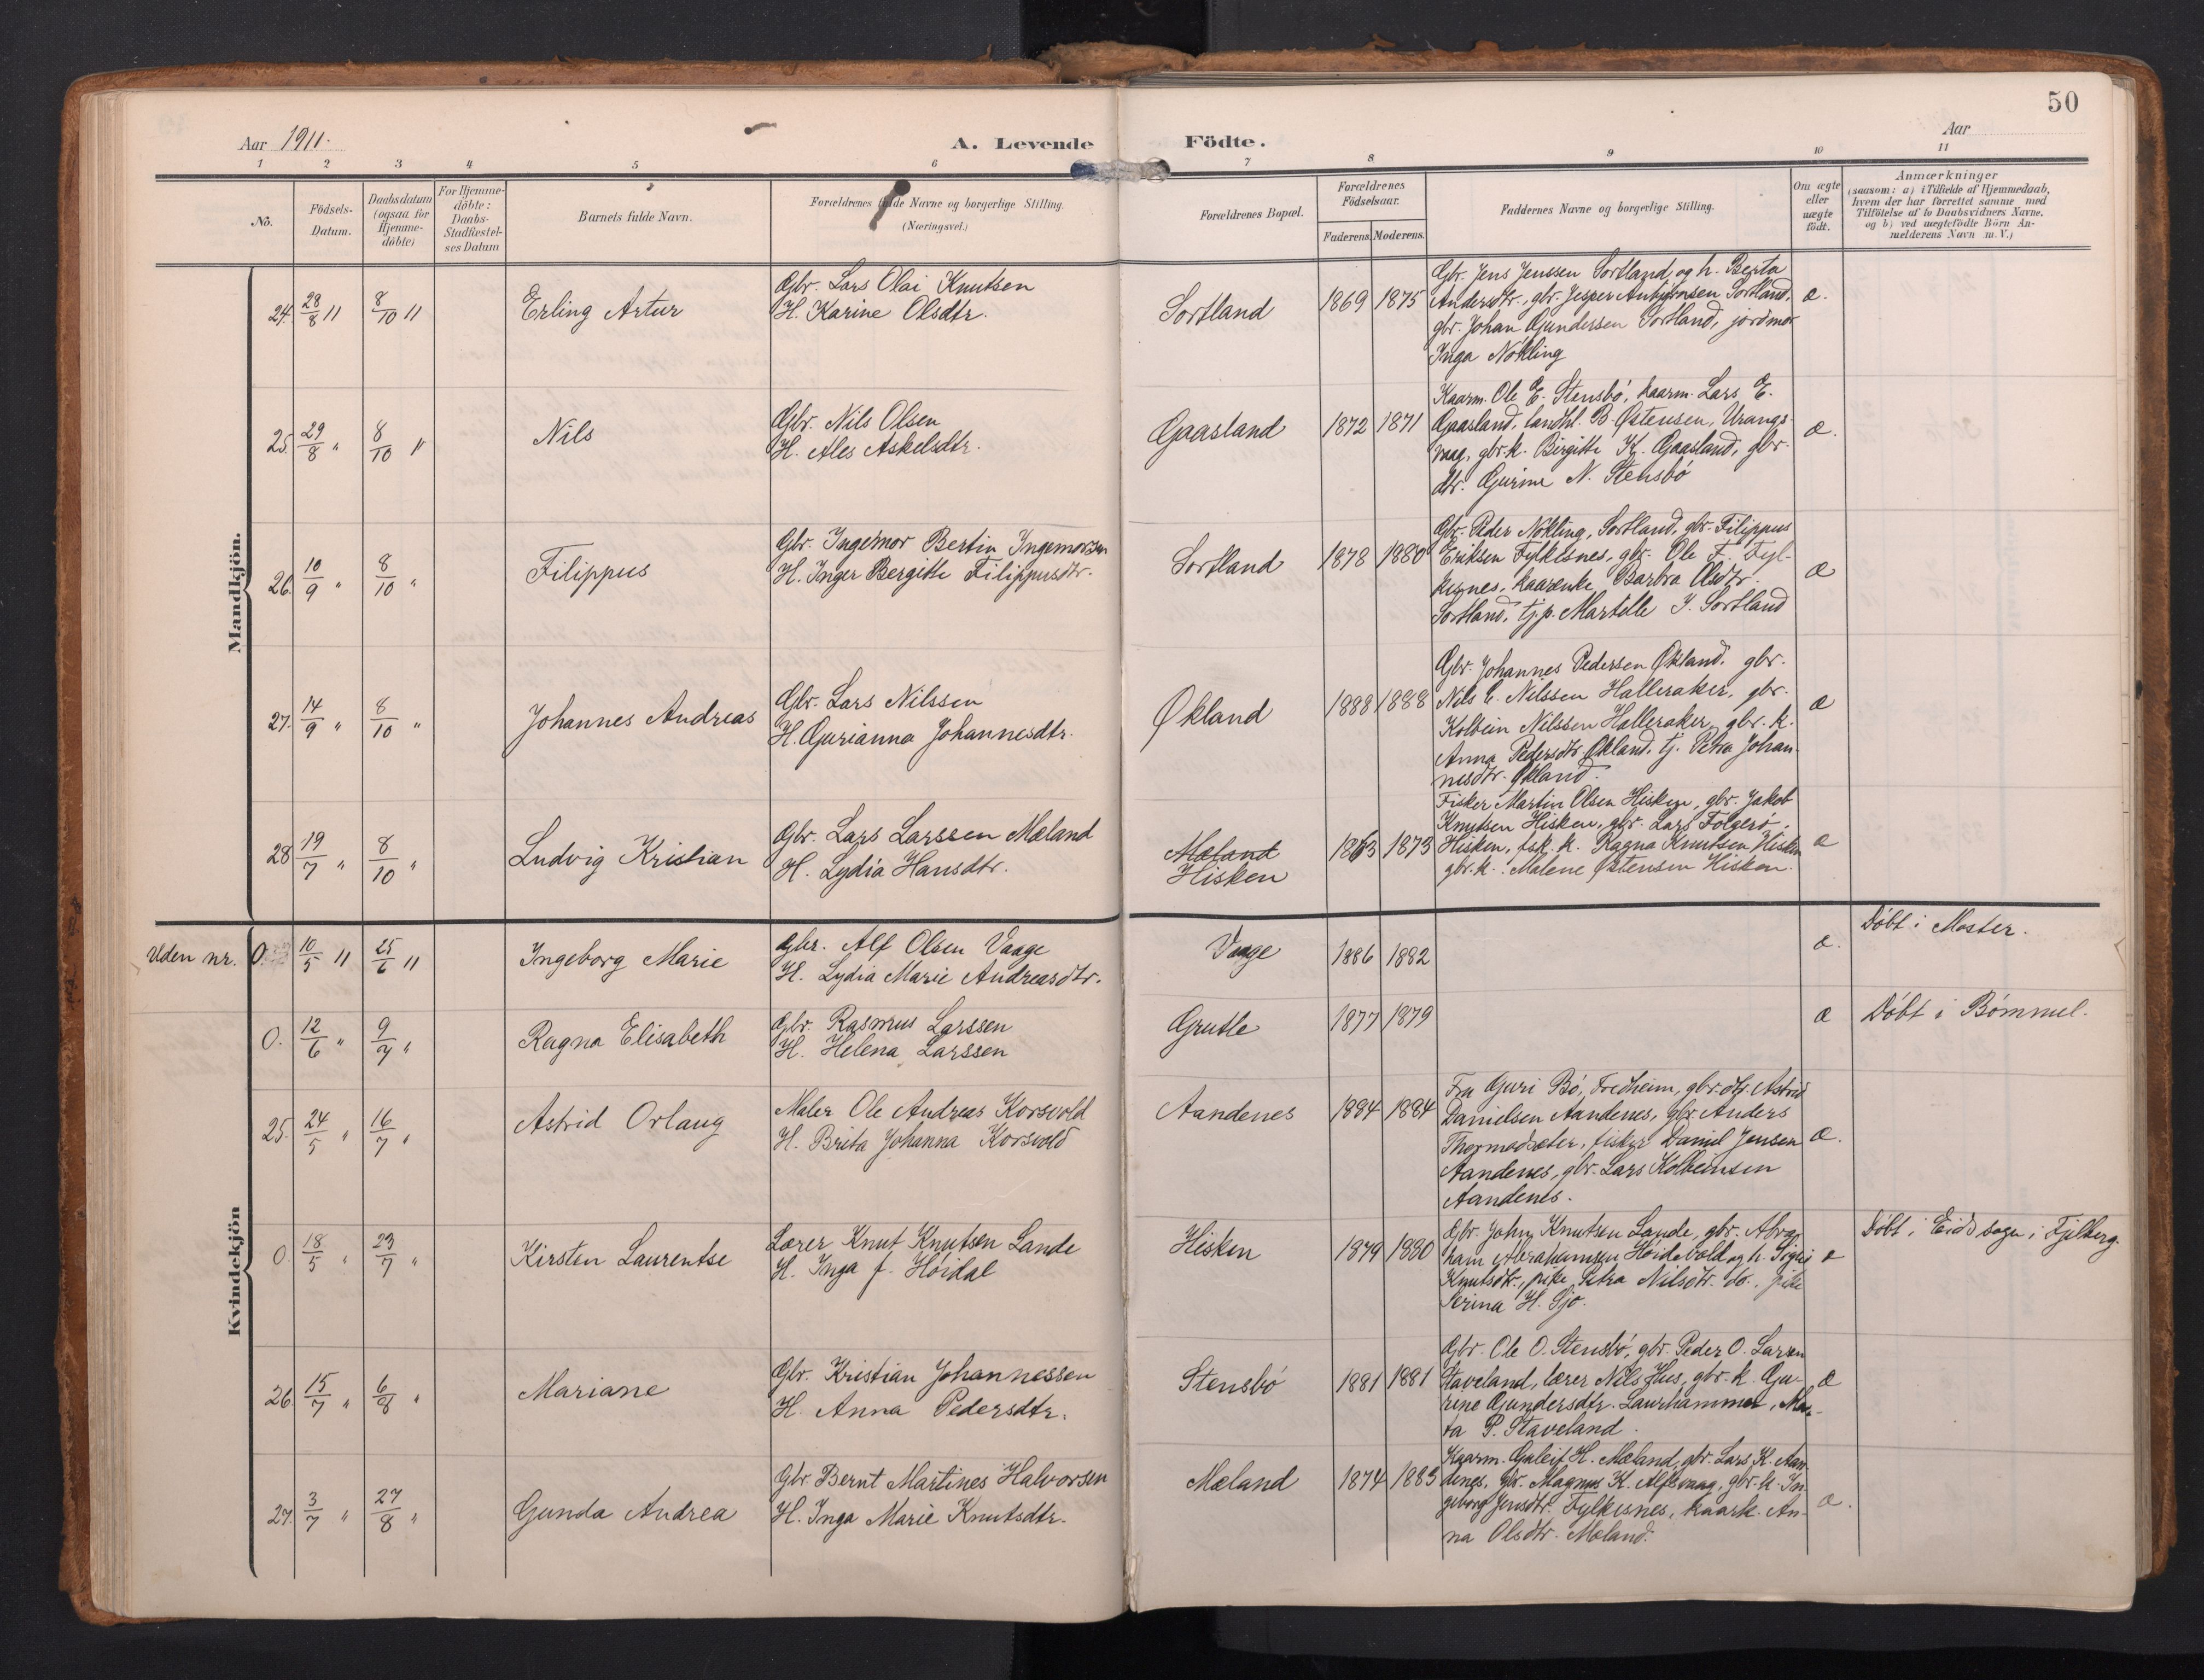 50
Aar 1911.
A. Levende Födte.
Aar
1 2 3 4 5 6 7 8 9 10 11
No.
Födsels-
Datum.
Daabsdatum
(ogsaa för
Hjemme-
döbte)
For Hjemme-
döbte:
Daabs-
Stadfæstel-
ses Datum
Barnets fulde Navn.
Forældrenes fulde Navne og borgerlige Stilling.
(Næringsvei.)
Forældrenes Bopæl.
Forældrenes
Födselsaar.
Faderens. Moderens.
Faddernes Navne og borgerlige Stilling.
Om ægte
eller
uægte
födt.
Anmærkninger
(saasom: a) i Tilfælde af Hjemmedaab,
hvem der har forrettet samme med
Tilföielse af to Daabsvidners Navne.
og b) ved uægtefödte Börn An-
melderens Navn m. V.)
Mandkjön.
24. 28/8 11 8/10 11 Erling Artur
Gbr. Lars Olai Knutsen
H. Karine Olsdtr.
Sortland 1869 1875
Gbr. Jens Jenssen Sortland og h. Berta
Andersdtr., gbr. Jesper Anbjørnsen Sortland,
gbr. Johan Gundersen Sortland, jordmor
Inga Nökling
æ.
25. 29/8 " 8/10 11 Nils
Gbr. Nils Olsen
H. Ales Askelsdtr.
Gaasland 1872 1871
Kaarm. Ole E. Stensbö, kaarm. Lars E.
Gaasland, landhl. B. Østensen, Urangs-
vaag, gbr.k. Birgitte K. Gaasland, gbr.
dtr. Gurine N. Stensbö
æ.
26. 10/9 " 8/10 " Filippus
Gbr. Ingemor Bertin Ingemorsen
H. Inger Bergitte Filippusdtr.
Sortland 1878 1880
Gbr. Peder Nökling, Sortland, gbr. Filippus
Eriksen Fylkesnes, gbr. Ole F. Fyl-
kesnes, kaarenke Barbra Olsdtr.
Sortland, tj.p. Martelle I. Sortland
æ
27. 14/9 " 8/10 " Johannes Andreas
Gbr. Lars Nilssen
H. Gurianna Johannesdtr.
Økland 1888 1888
Gbr. Johannes Pedersen Økland, gbr.
Nils E. Nilssen Halleraker, gbr.
Kolbein Nilssen Halleraker, gbr. k.
Anna Pedersdtr. Økland, tj. Petra Johan-
nesdtr. Økland.
æ
28 19/7 " 8/10 " Ludvig Kristian
Gbr. Lars Larssen Mæland
H. Lydia Hansdtr.
Mæland
Hisken
1863 1873
Fisker Martin Olsen Hisken, gbr. Jakob
Knutsen Hisken, gbr. Lars Folgerö,
Hisken, fsk. k. Ragna Knutsen Hisken
gbr.k. Malene Østensen Hisken.
æ
Kvindekjön
Uden nr. 0. 10/5 11 25/6 11 Ingeborg Marie
Gbr. Alf Olsen Vaage
H. Lydia Marie Andreasdtr.
Vaage 1886 1882
æ. Döbt i Moster.
0. 12/6 " 9/7 " Ragna Elisabeth
Gbr. Rasmus Larssen
H. Helena Larssen
Grutle 1877 1879
æ Döbt i Bömmel.
25. 24/5 " 16/7 " Astrid Orlaug
Maler Ole Andreas Korsvold
H. Brita Johanna Korsvold
Aandenes 1884 1884
Fru Guri Bö, Fredheim, gbr. dtr. Astrid
Danielsen Aandenes, gbr. Anders
Thormodsæter, fisker Daniel Jensen
Aandenes, gbr. Lars Kolbeinsen
Aandenes.
æ.
0 18/5 " 23/7 " Kirsten Laurentse
Lærer Knut Knutsen Lande
H. Inga f. Höidal
Hisken 1879 1880
Gbr. John Knutsen Lande, gbr. Abra-
ham Abrahamsen Höidebold og h. Sigri
Knutsdtr., pike Petra Nilsdtr. do., pike
Serina H. Sjo.
æ
Döbt i Eids sogn i Fjelberg.
26. 15/7 " 6/8 " Mariane
Gbr. Kristian Johannessen
H. Anna Pedersdtr.
Stensbö 1881 1881
Gbr. Ole O. Stensbö, gbr. Peder O. Larsen
Staveland, lærer Nils Hus, gbr. k. Gu-
rine Gundersdtr. Laurhammer, Mar-
ta P. Staveland.
æ
27. 3/7 " 27/8 " Gunda Andrea
Gbr. Bernt Martines Halvorsen
H. Inga Marie Knutsdtr.
Mæland 1874 1883
Kaarm. Galeif H. Mæland, gbr. Lars K. Aan-
denes, gbr. Magnus K. Alfsvaag, gbr. k. In-
geborg Jensdtr. Fylkesnes, kaark. An-
na Olsdtr. Mæland.
æ.